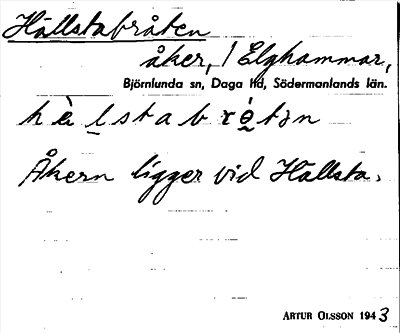 Hällstabråten
åker, 1 Elghammar,
Björnlunda sn, Daga hd, Södermanlands län.
Åkern ligger vid Hällsta.
ARTUR OLSSON 1943